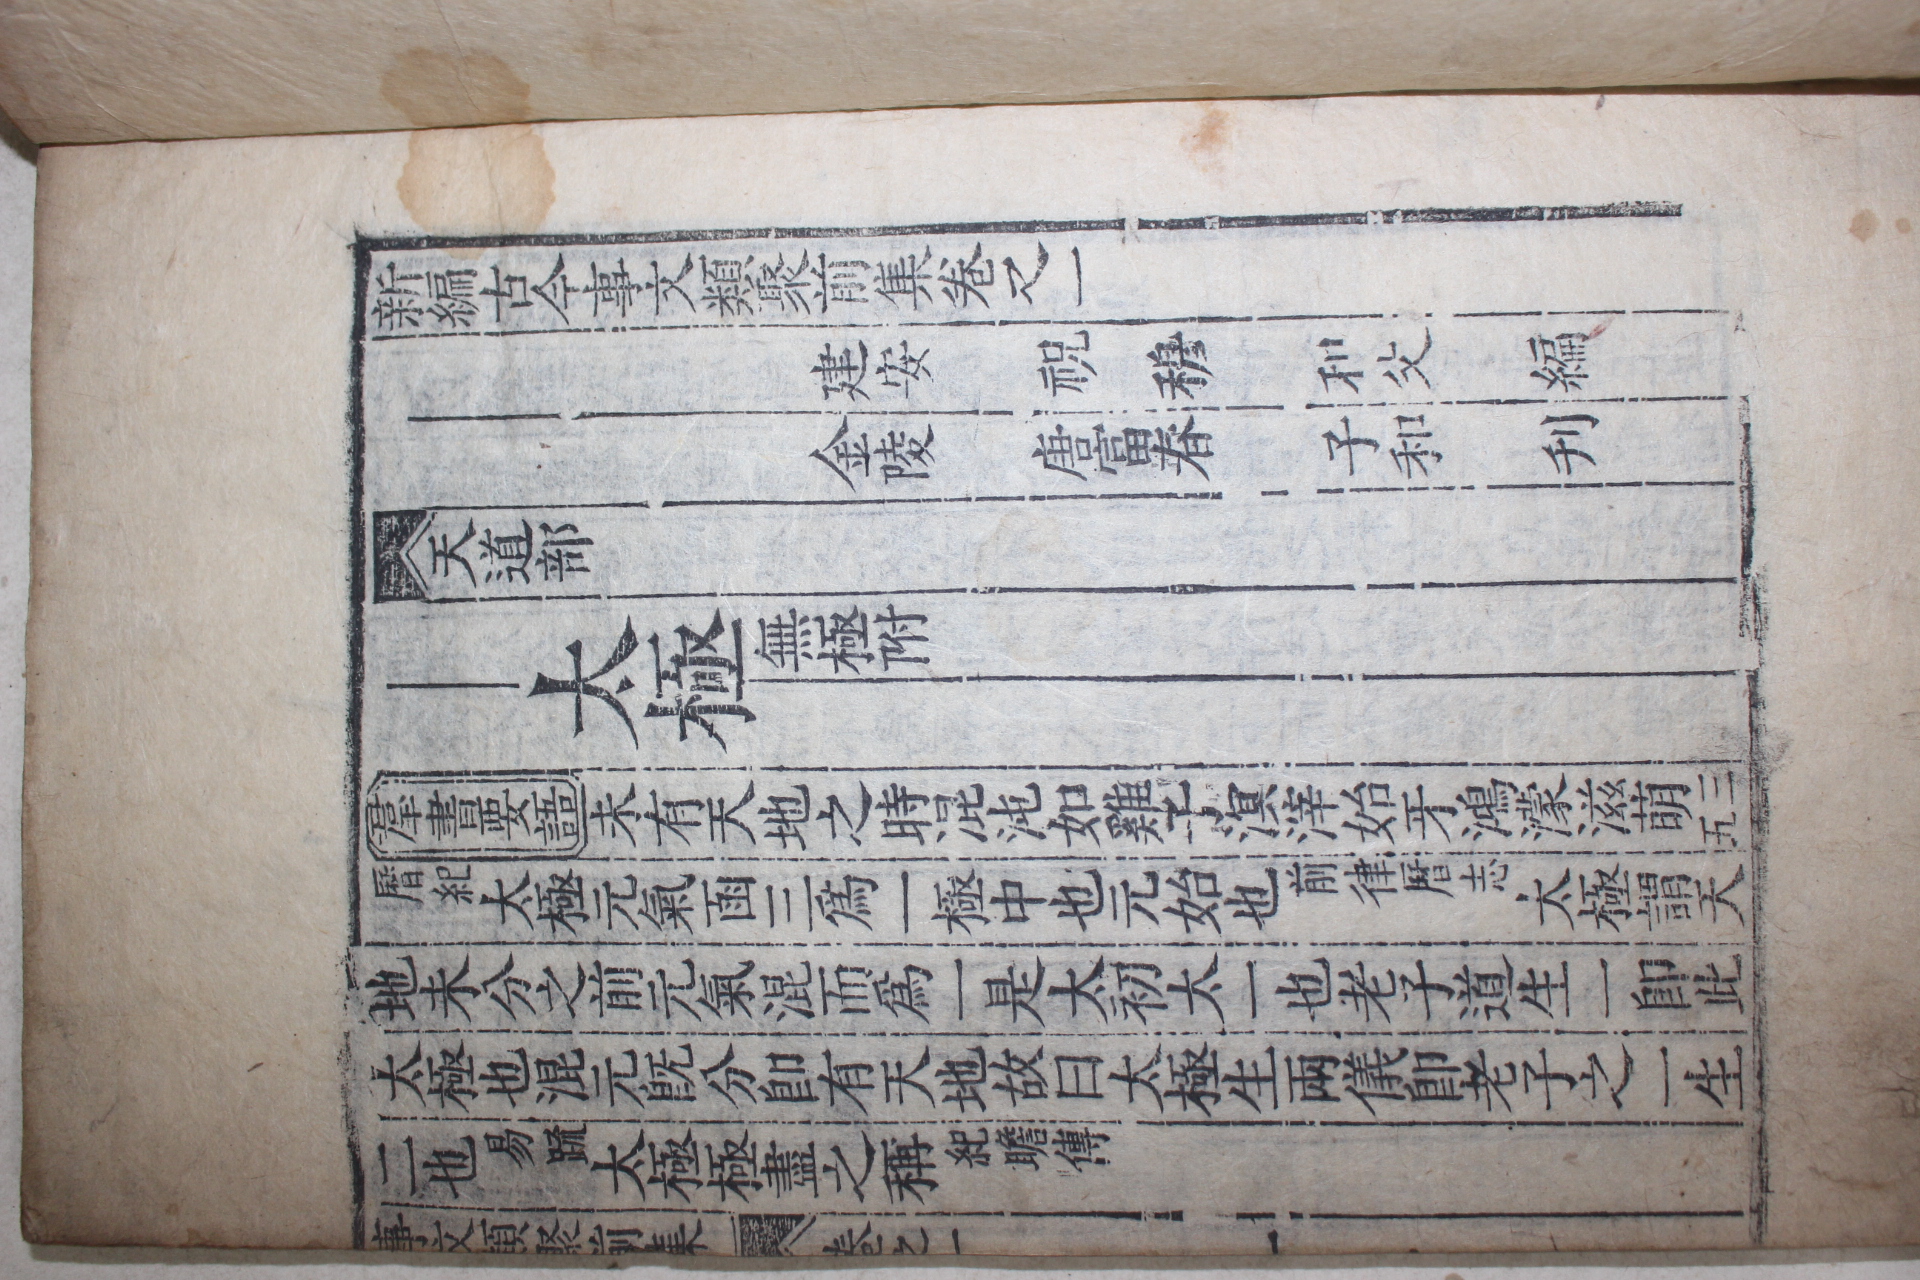 新編古今事文類聚前集卷之一
建安 祝穆 和父 編
金陵 唐富春 子和 刋
天道部
太極 無極附
羣書要語 未有天地之時混沌如雞子溟涬始牙鴻濛滋萌三五
曆紀 太極元氣函三爲一極中也元始也 前律曆志 太極謂天
地未分之前元氣混而爲一是太初太一也老子道生一卽此
太極也混元旣分卽有天地故曰太極生兩儀卽老子之一生
二也 易䟽 太極極盡之稱 紀瞻傳
事文類聚前集 卷之一 一